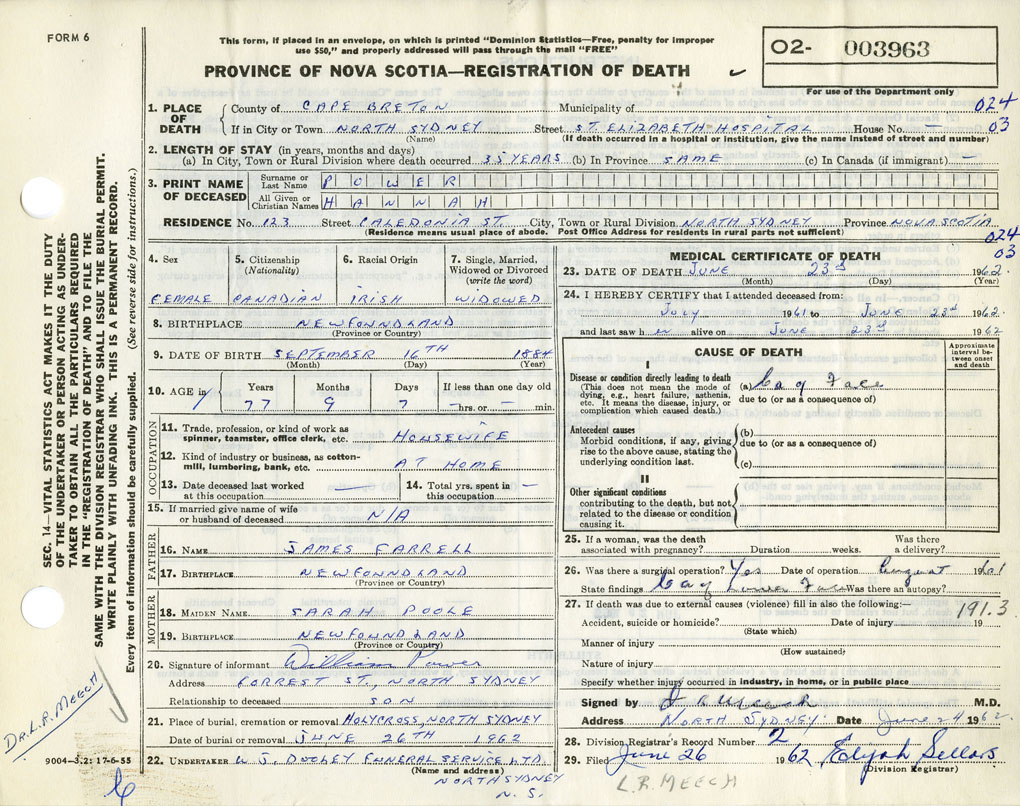 FORM 6
This form, if placed in an envelope, on which is printed "Dominion Statistics—Free, penalty for improper
use $50," and properly addressed will pass through the mail "FREE"
PROVINCE OF NOVA SCOTIA—REGISTRATION OF DEATH
02- 003963
For use of the Department only
1. PLACE OF DEATH
County of CAPE BRETON Municipality of 024
If in City or Town NORTH SYDNEY Street ST. ELIZABETH HOSPITAL House No. — 03
(Name) (If death occurred in a hospital or institution, give the name instead of street and number)
2. LENGTH OF STAY (in years, months and days)
(a) In City, Town or Rural Division where death occurred 35 YEARS (b) In Province SAME (c) In Canada (if immigrant) —
3. PRINT NAME OF DECEASED
Surname or Last Name POWER
All Given or Christian Names HANNAH
RESIDENCE No. 123 Street CALEDONIA ST. City, Town or Rural Division NORTH SYDNEY Province NOVA SCOTIA
(Residence means usual place of abode. Post Office Address for residents in rural parts not sufficient)
024
03
4. Sex
FEMALE
5. Citizenship
(Nationality)
CANADIAN
6. Racial Origin
IRISH
7. Single, Married,
Widowed or Divorced
(write the word)
WIDOWED
8. BIRTHPLACE NEWFOUNDLAND
(Province or Country)
9. DATE OF BIRTH SEPTEMBER 16TH 1884
(Month) (Day) (Year)
10. AGE in
Years Months Days If less than one day old
77 9 7 — hrs. or — min.
OCCUPATION
11. Trade, profession, or kind of work as
spinner, teamster, office clerk, etc. HOUSEWIFE
12. Kind of industry or business, as cotton-
mill, lumbering, bank, etc. AT HOME
13. Date deceased last worked
at this occupation —
14. Total yrs. spent in
this occupation —
15. If married give name of wife
or husband of deceased N/A
FATHER
16. NAME JAMES FARRELL
17. BIRTHPLACE NEWFOUNDLAND
(Province or Country)
MOTHER
18. MAIDEN NAME SARAH POOLE
19. BIRTHPLACE NEWFOUNDLAND
(Province or Country)
20. Signature of informant William Power
Address FORREST ST., NORTH SYDNEY
Relationship to deceased SON
21. Place of burial, cremation or removal HOLYCROSS, NORTH SYDNEY
Date of burial or removal JUNE 26TH 1962
22. UNDERTAKER W. J. DOOLEY FUNERAL SERVICE LTD.
(Name and address)
NORTH SYDNEY
N. S.
MEDICAL CERTIFICATE OF DEATH
23. DATE OF DEATH JUNE 23rd 1962.
(Month) (Day) (Year)
24. I HEREBY CERTIFY that I attended deceased from:
July 1961 to June 23rd 1962.
and last saw her alive on June 23rd 1962
CAUSE OF DEATH
Approximate
interval be-
tween onset
and death
I
Disease or condition directly leading to death
(This does not mean the mode of
dying, e.g., heart failure, asthenia,
etc. It means the disease, injury, or
complication which caused death.)
(a) Ca of Face
due to (or as a consequence of)
Antecedent causes
Morbid conditions, if any, giving
rise to the above cause, stating the
underlying condition last.
(b)
due to (or as a consequence of)
(c)
II
Other significant conditions
contributing to the death, but not
related to the disease or condition
causing it.
25. If a woman, was the death
associated with pregnancy? Duration weeks. Was there
a delivery?
26. Was there a surgical operation? Yes Date of operation August 1961
State findings Ca of Face Was there an autopsy?
27. If death was due to external causes (violence) fill in also the following:— 191.3
Accident, suicide or homicide? Date of injury 19
(State which)
Manner of injury
(How sustained)
Nature of injury
Specify whether injury occurred in industry, in home, or in public place
Signed by L R Meech M.D.
Address NORTH SYDNEY Date June 24 1962.
28. Division Registrar's Record Number 2
29. Filed June 26 1962 Elijah Sellars
(Division Registrar)
L. R. MEECH
SEC. 14—VITAL STATISTICS ACT MAKES IT THE DUTY
OF THE UNDERTAKER OR PERSON ACTING AS UNDER-
TAKER TO OBTAIN ALL THE PARTICULARS REQUIRED
IN THE "REGISTRATION OF DEATH" AND TO FILE THE
SAME WITH THE DIVISION REGISTRAR WHO SHALL ISSUE THE BURIAL PERMIT.
WRITE PLAINLY WITH UNFADING INK. THIS IS A PERMANENT RECORD.
Every item of information should be carefully supplied. (See reverse side for instructions.)
DR. L. R. MEECH
9004-3.2: 17-6-55